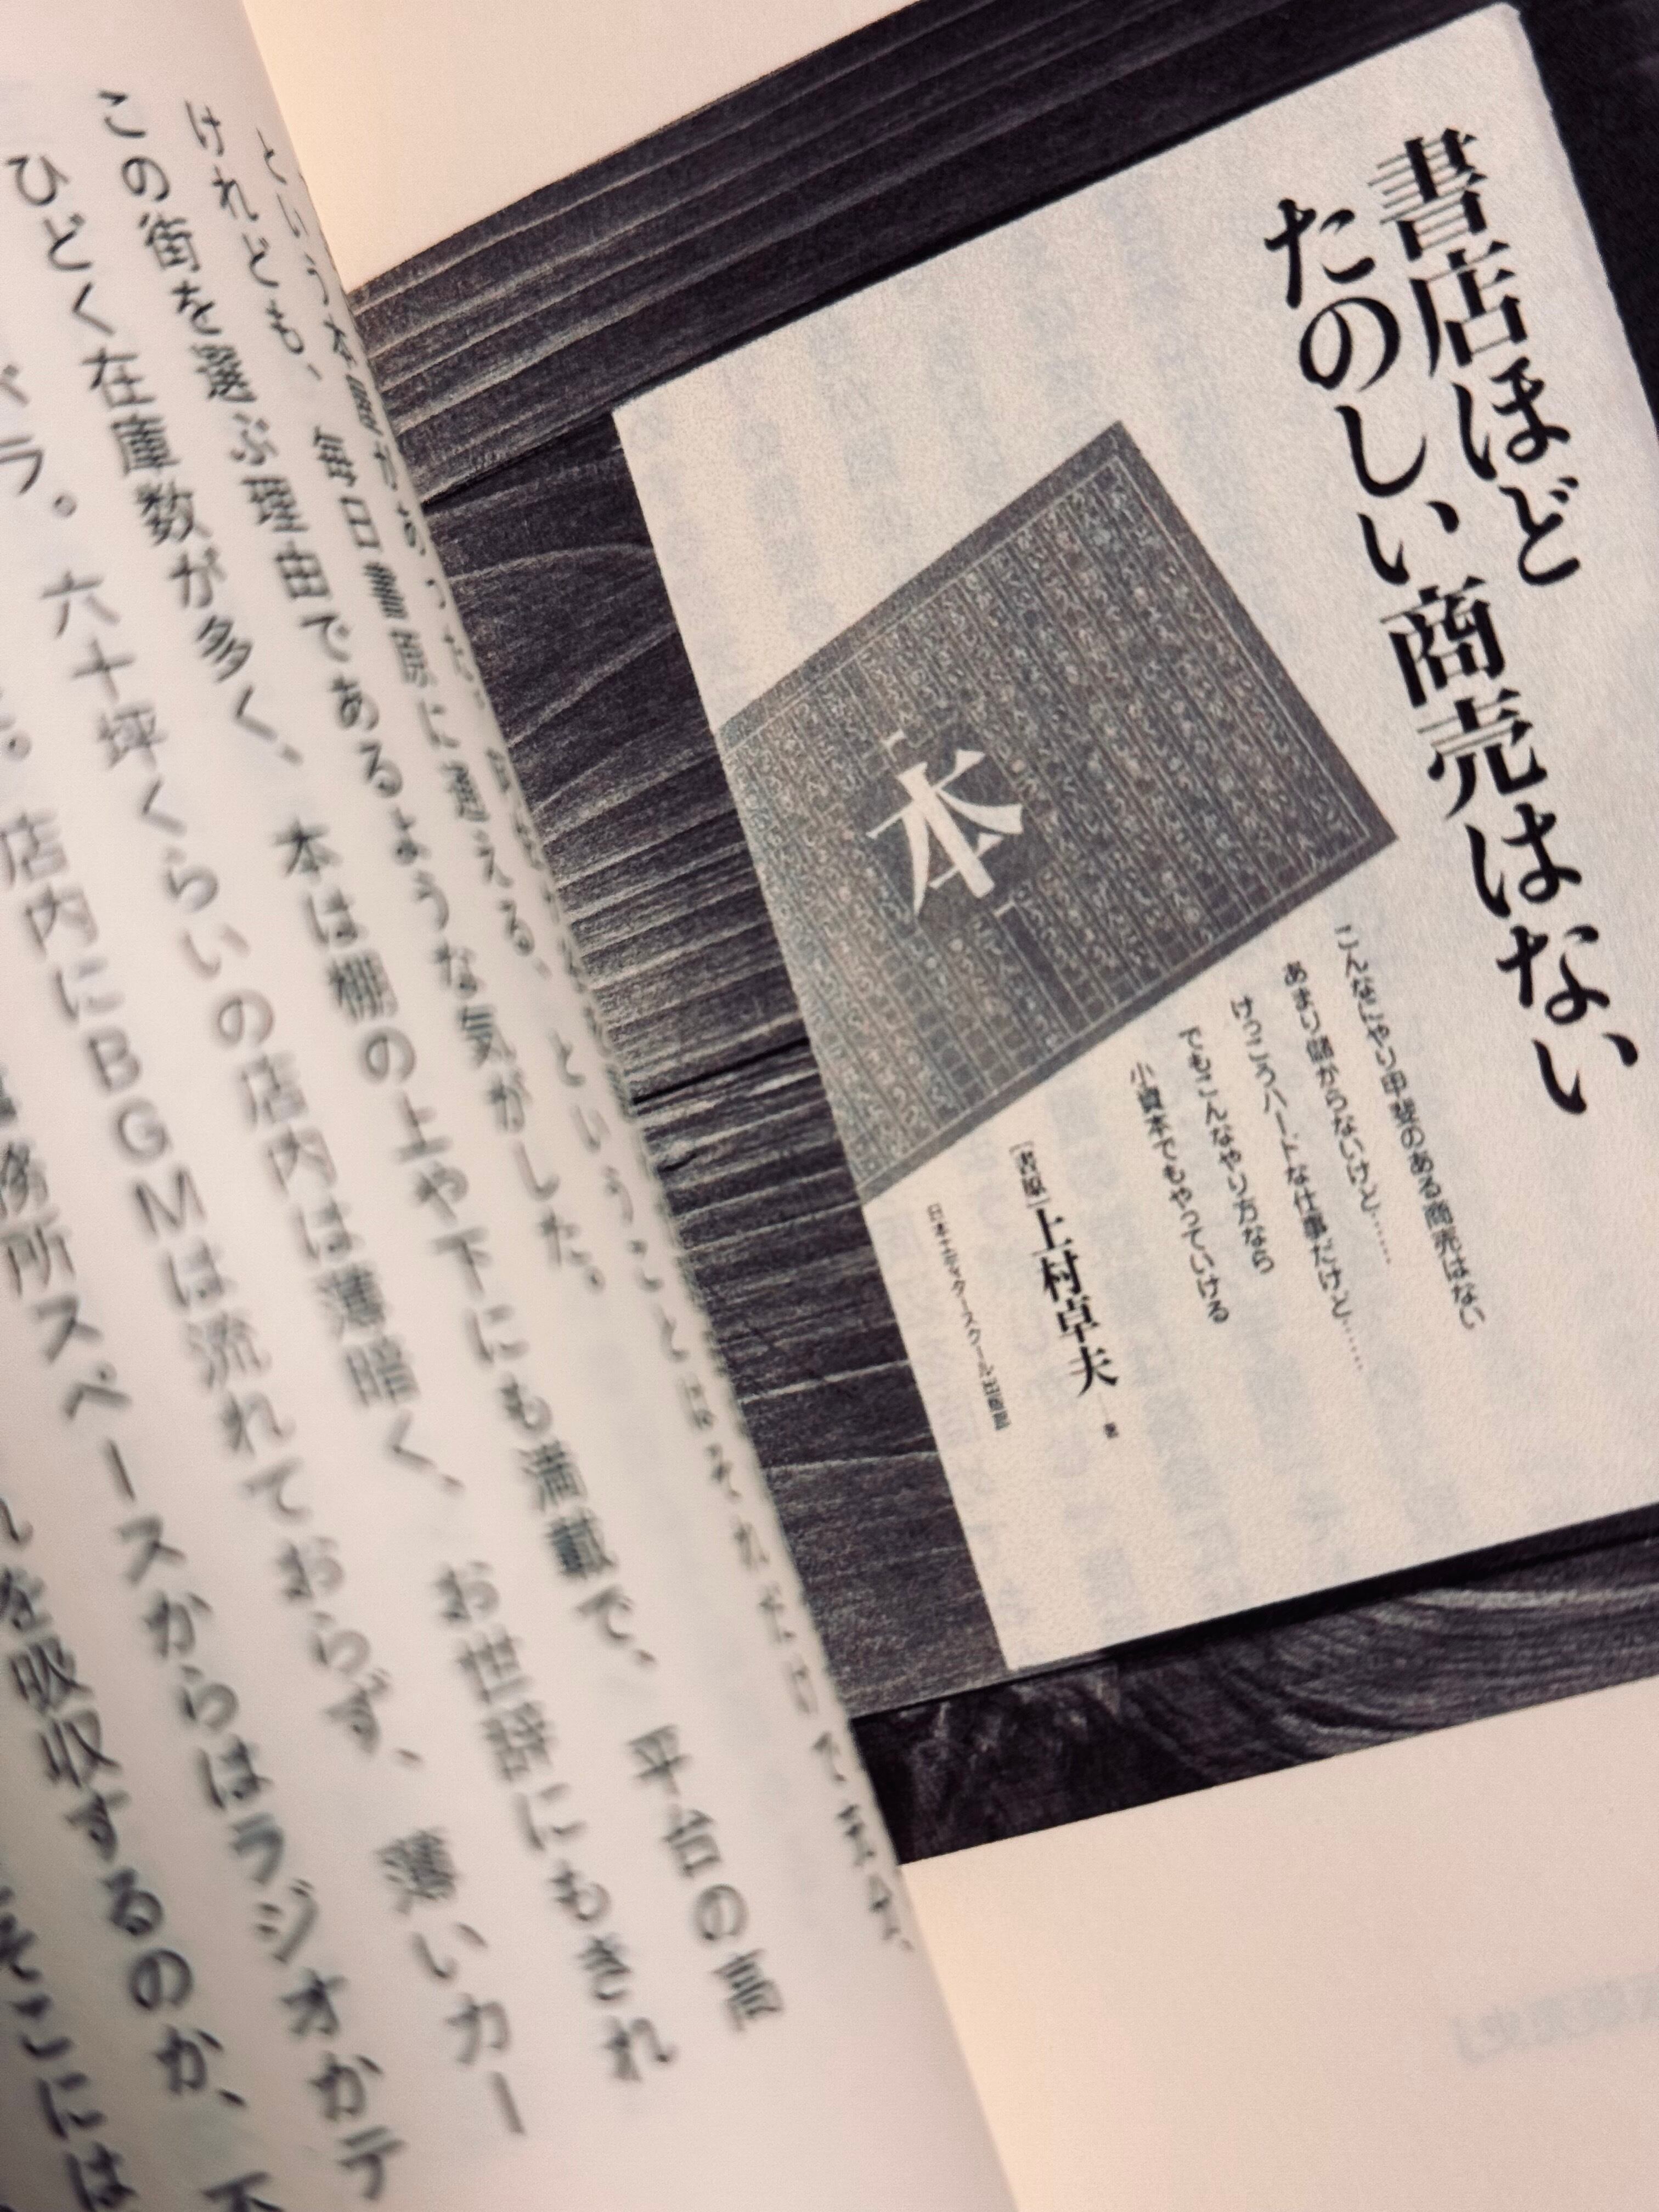 書店ほど
たのしい商売はない
こんなにやり甲斐のある商売はない
あまり儲からないけど……
けっこうハードな仕事だけど……
でもこんなやり方なら
小資本でもやっていける
本
［書原］上村卓夫 著
日本エディタースクール出版部
という本屋があった。
ということはそれだけで
けれども、毎日書原に通える、
この街を選ぶ理由であるような気がした。
ひどく在庫数が多く、本は棚の上や下にも満載で、平台の高
六十坪くらいの店内は薄暗く、お世辞にもきれ
店内にBGMは流れておらず、薄いカー
務所スペースからはラジオかテ
を吸収するのか、不
そこには